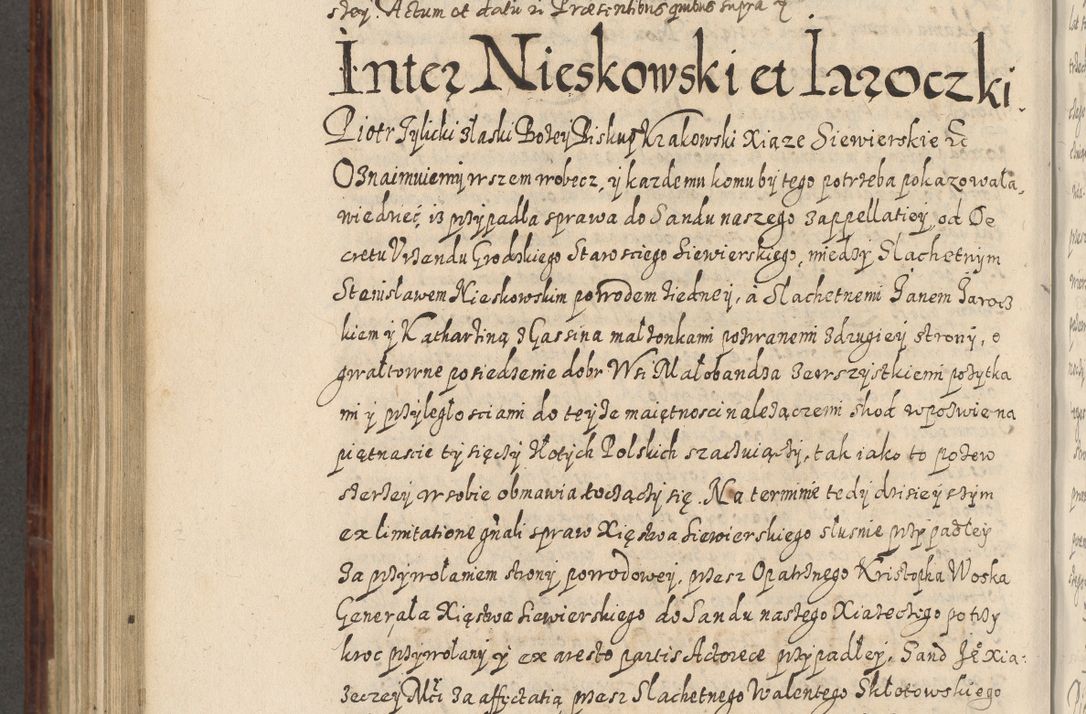 stey. Actum et datū ꝛ Præsentibus quibus supra
Inter Nieskowski et Iaroczki.
Piotr Tylicki z łaski Bozey Biskup Krakowski Xiąze Siewierskie &c
Oznaimuiemy wszem wobecz, y kazdemu komu by tego potrzeba pokazowała,
wiedziec, iz przypadła sprawa do Sandu naszego z appellatiey, od De
cretu Vrzandu Grodzkiego Starosciego Siewierskiego, miedzy Slachetnym
Stanisławem Nieskowskim powodem ziedney, a Slachetnemi Janem Jarocz
kiem y Katharziną z Gassina małzonkami pozwanemi z drugiey strony, o
gwałtowne posiedzenie dobr Wsi Małobandza ze wszystkiemi pozytka
mi y przyległosciami do teyze maiętnosci nalezączemi skod w pozwie na
piętnascie tysięczy złotych Polskich szaczuiączy, tak iako to pozew
szerzey w sobie obmawia toczączy się. Na terminie tedy dzisieyszym
ex limitatione gn̄ali spraw Xięstwa Siewierskiego słusnie przypadłey
za przywołaniem strony powodowey, przez Opatrznego Kristopha Woska
Generała Xięstwa Siewierskiego do Sandu naszego Xiazeczego potrzy
kroc przywołany y ex aresto partis Actoreæ przypadłey, Sand Je° Xia:
zeczey Mči za affectatią przez Slachetnego Walentego Skłotowskiego